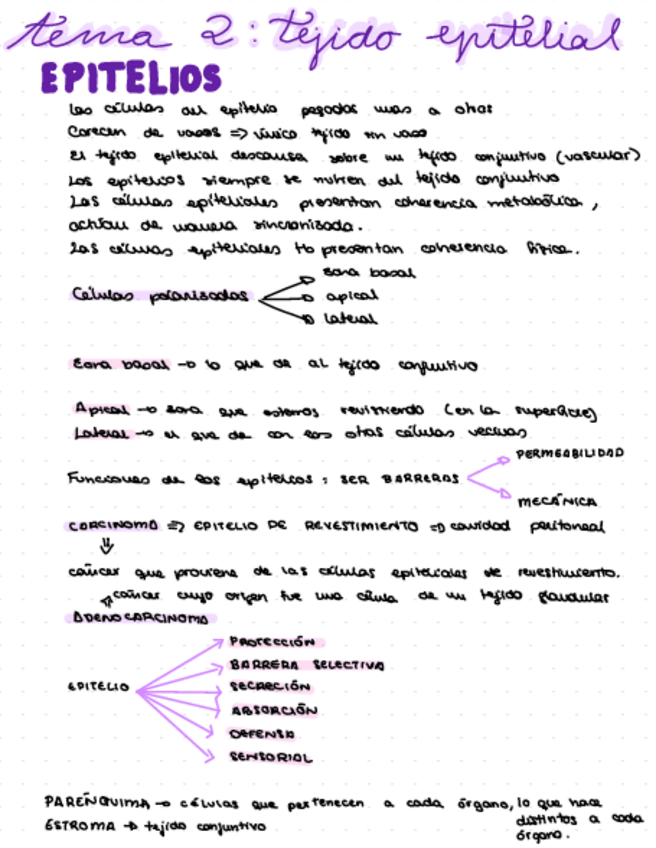 tema 2: tejido epitelial
EPITELIOS
Las células del epitelio pegadas unas a otras
Carecen de vasos => único tejido sin vaso
El tejido epitelial descansa sobre un tejido conjuntivo (vascular)
Los epitelios siempre se nutren del tejido conjuntivo
Las células epiteliales presentan coherencia metabólica,
actúan de manera sincronizada.
Las células epiteliales presentan coherencia física.
zona basal
Células polarizadas
apical
lateral
zona basal → lo que da al tejido conjuntivo
Apical → zona que estamos revistiendo (en la superficie)
Lateral → el que da con las otras células vecinas
PERMEABILIDAD
Funciones de los epitelios: SER BARRERAS
MECÁNICA
CARCINOMA => EPITELIO DE REVESTIMIENTO => cavidad peritoneal
cáncer que proviene de las células epiteliales de revestimiento.
cáncer cuyo origen fue una célula de un tejido glandular
ADENOCARCINOMA
PROTECCIÓN
BARRERA SELECTIVA
EPITELIO
SECRECIÓN
ABSORCIÓN
DEFENSA
SENSORIAL
PARÉNQUIMA → células que pertenecen a cada órgano, lo que hace
distintos a cada
órgano.
ESTROMA → tejido conjuntivo